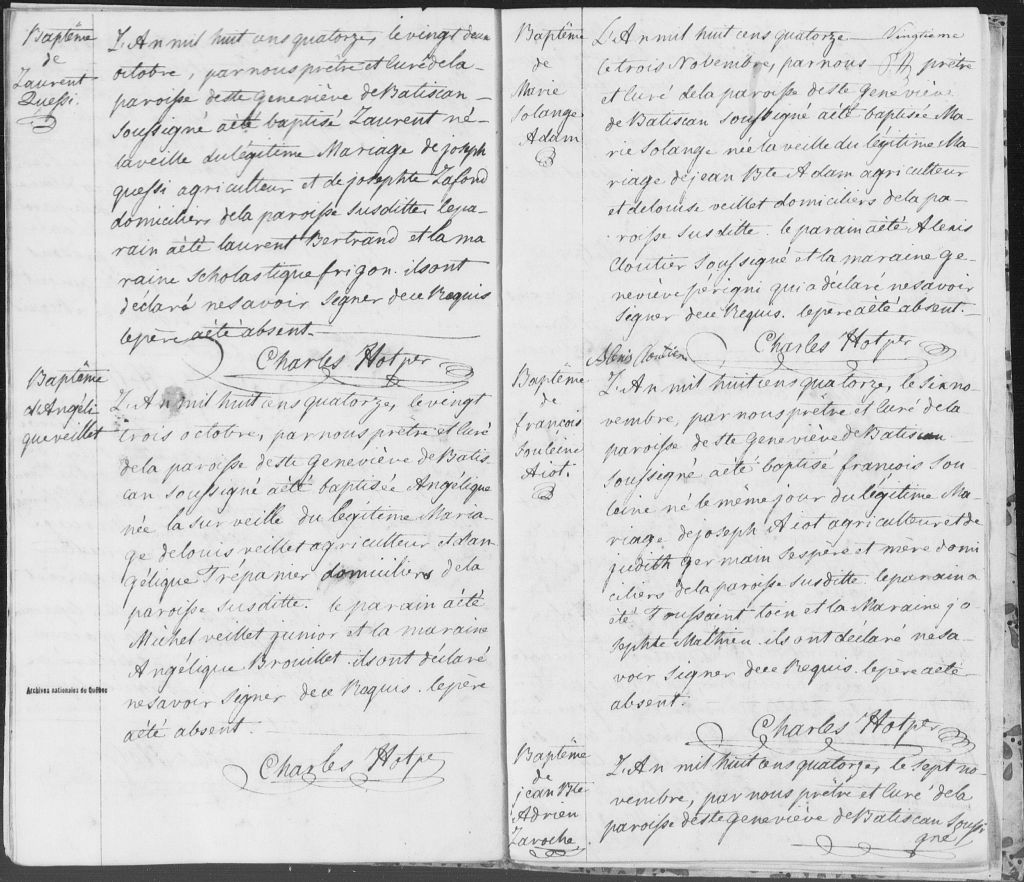 Baptême
de
Laurent
Quessi.
L'An mil huit cens quatorze, le vingt deux
octobre, par nous prêtre et curé de la
paroisse de ste Geneviève de Batiscan
soussigné a été baptisé Laurent né
la veille du légitime Mariage de joseph
quessi agriculteur et de josephte Lafond
domiciliers de la paroisse susditte. le pa-
rain a été laurent Bertrand et la ma
raine scholastique frigon. ils ont
déclaré ne savoir signer de ce Requis
le père a été absent.
Charles Hotper
Baptême
d'Angéli
que veillet
L'An mil huit cens quatorze, le vingt
trois octobre, par nous prêtre et curé
de la paroisse de ste Geneviève de Batis
can soussigné a été baptisée Angélique
née la surveille du légitime Maria-
ge de louis veillet agriculteur et d'an
gélique Trépanier domiciliers de la
paroisse susditte. le parain a été
Michel veillet junior et la maraine
Angélique Brouillet. ils ont déclaré
ne savoir signer de ce Requis. le père
a été absent.
Charles Hotper
Archives nationales du Québec
Baptême
de
Marie
solange
Adam
L'An mil huit cens quatorze Vingtieme
le trois Novembre, par nous prêtre
et curé de la paroisse de ste Geneviève
de Batiscan soussigné a été baptisée Ma-
rie solange née la veille du légitime Ma-
riage de jean Bte Adam agriculteur
et de louise veillet domiciliers de la pa-
roisse susditte. le parain a été Alexis
Cloutier soussigné et la maraine ge-
neviève périgni qui a déclaré ne savoir
signer de ce Requis. le père a été absent.
Alexis Cloutier Charles Hotper
Baptême
de
françois
Aiot.
L'An mil huit cens quatorze, le six no-
vembre, par nous prêtre et curé de la
paroisse de ste Geneviève de Batiscan
soussigné a été baptisé françois
né le même jour du légitime Ma-
riage de joseph Aiot agriculteur et de
judith germain ses père et mère domi
ciliers de la paroisse susditte. le parain a
été Toussaint et la Maraine jo-
sephte Mathieu. ils ont déclaré ne sa-
voir signer de ce Requis. le père a été
absent.
Charles Hotper
Baptême
de
jean Bte
Adrien
Laroche
L'An mil huit cens quatorze, le sept no-
vembre, par nous prêtre et curé de la
paroisse de ste Geneviève de Batiscan soussi
gné